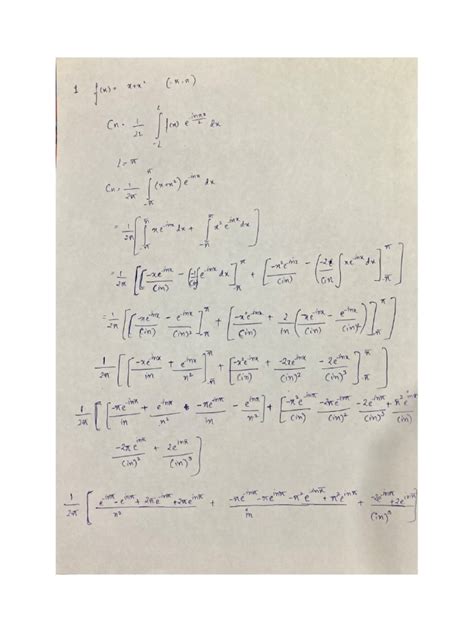 1 f(x) = x+x² (-π, π)
Cn = 1/2L ∫_{-L}^{L} f(x) e^{inπx/L} dx
L = π
Cn = 1/2π ∫_{-π}^{π} (x+x²) e^{-inx} dx
= 1/2π [∫_{-π}^{π} x e^{-inx} dx + ∫_{-π}^{π} x² e^{-inx} dx]
= 1/2π [[-xe^{-inx}/(in) - (-1/(in) ∫ e^{-inx} dx]_{-π}^{π} + [-x²e^{-inx}/(in) - (-2/in ∫ xe^{-inx} dx]_{-π}^{π}]
= 1/2π [[-xe^{-inx}/(in) - e^{-inx}/(in)²]_{-π}^{π} + [-x²e^{-inx}/(in) + 2/in (-xe^{-inx}/(in) - e^{-inx}/(in)²)]_{-π}^{π}]
1/2π [[-xe^{-inx}/in + e^{-inx}/n²]_{-π}^{π} + [-x²e^{-inx}/(in) + -2xe^{-inx}/(in)² - 2e^{-inx}/(in)³]_{-π}^{π}]
1/2π [[-πe^{-inπ}/in + e^{-inπ}/n² - πe^{inπ}/in - e^{inπ}/n²] + [-π²e^{-inπ}/(in) - 2πe^{-inπ}/(in)² - 2e^{-inπ}/(in)³ + π²e^{inπ}/in
-2πe^{inπ}/(in)² + 2e^{inπ}/(in)³]
1/2π [e^{-inπ} - e^{inπ} + 2πe^{-inπ} + 2πe^{inπ}/n² + -πe^{-inπ} - πe^{inπ} - π²e^{-inπ} + π²e^{inπ}/in + -2e^{-inπ} + 2e^{inπ}/(in)³]